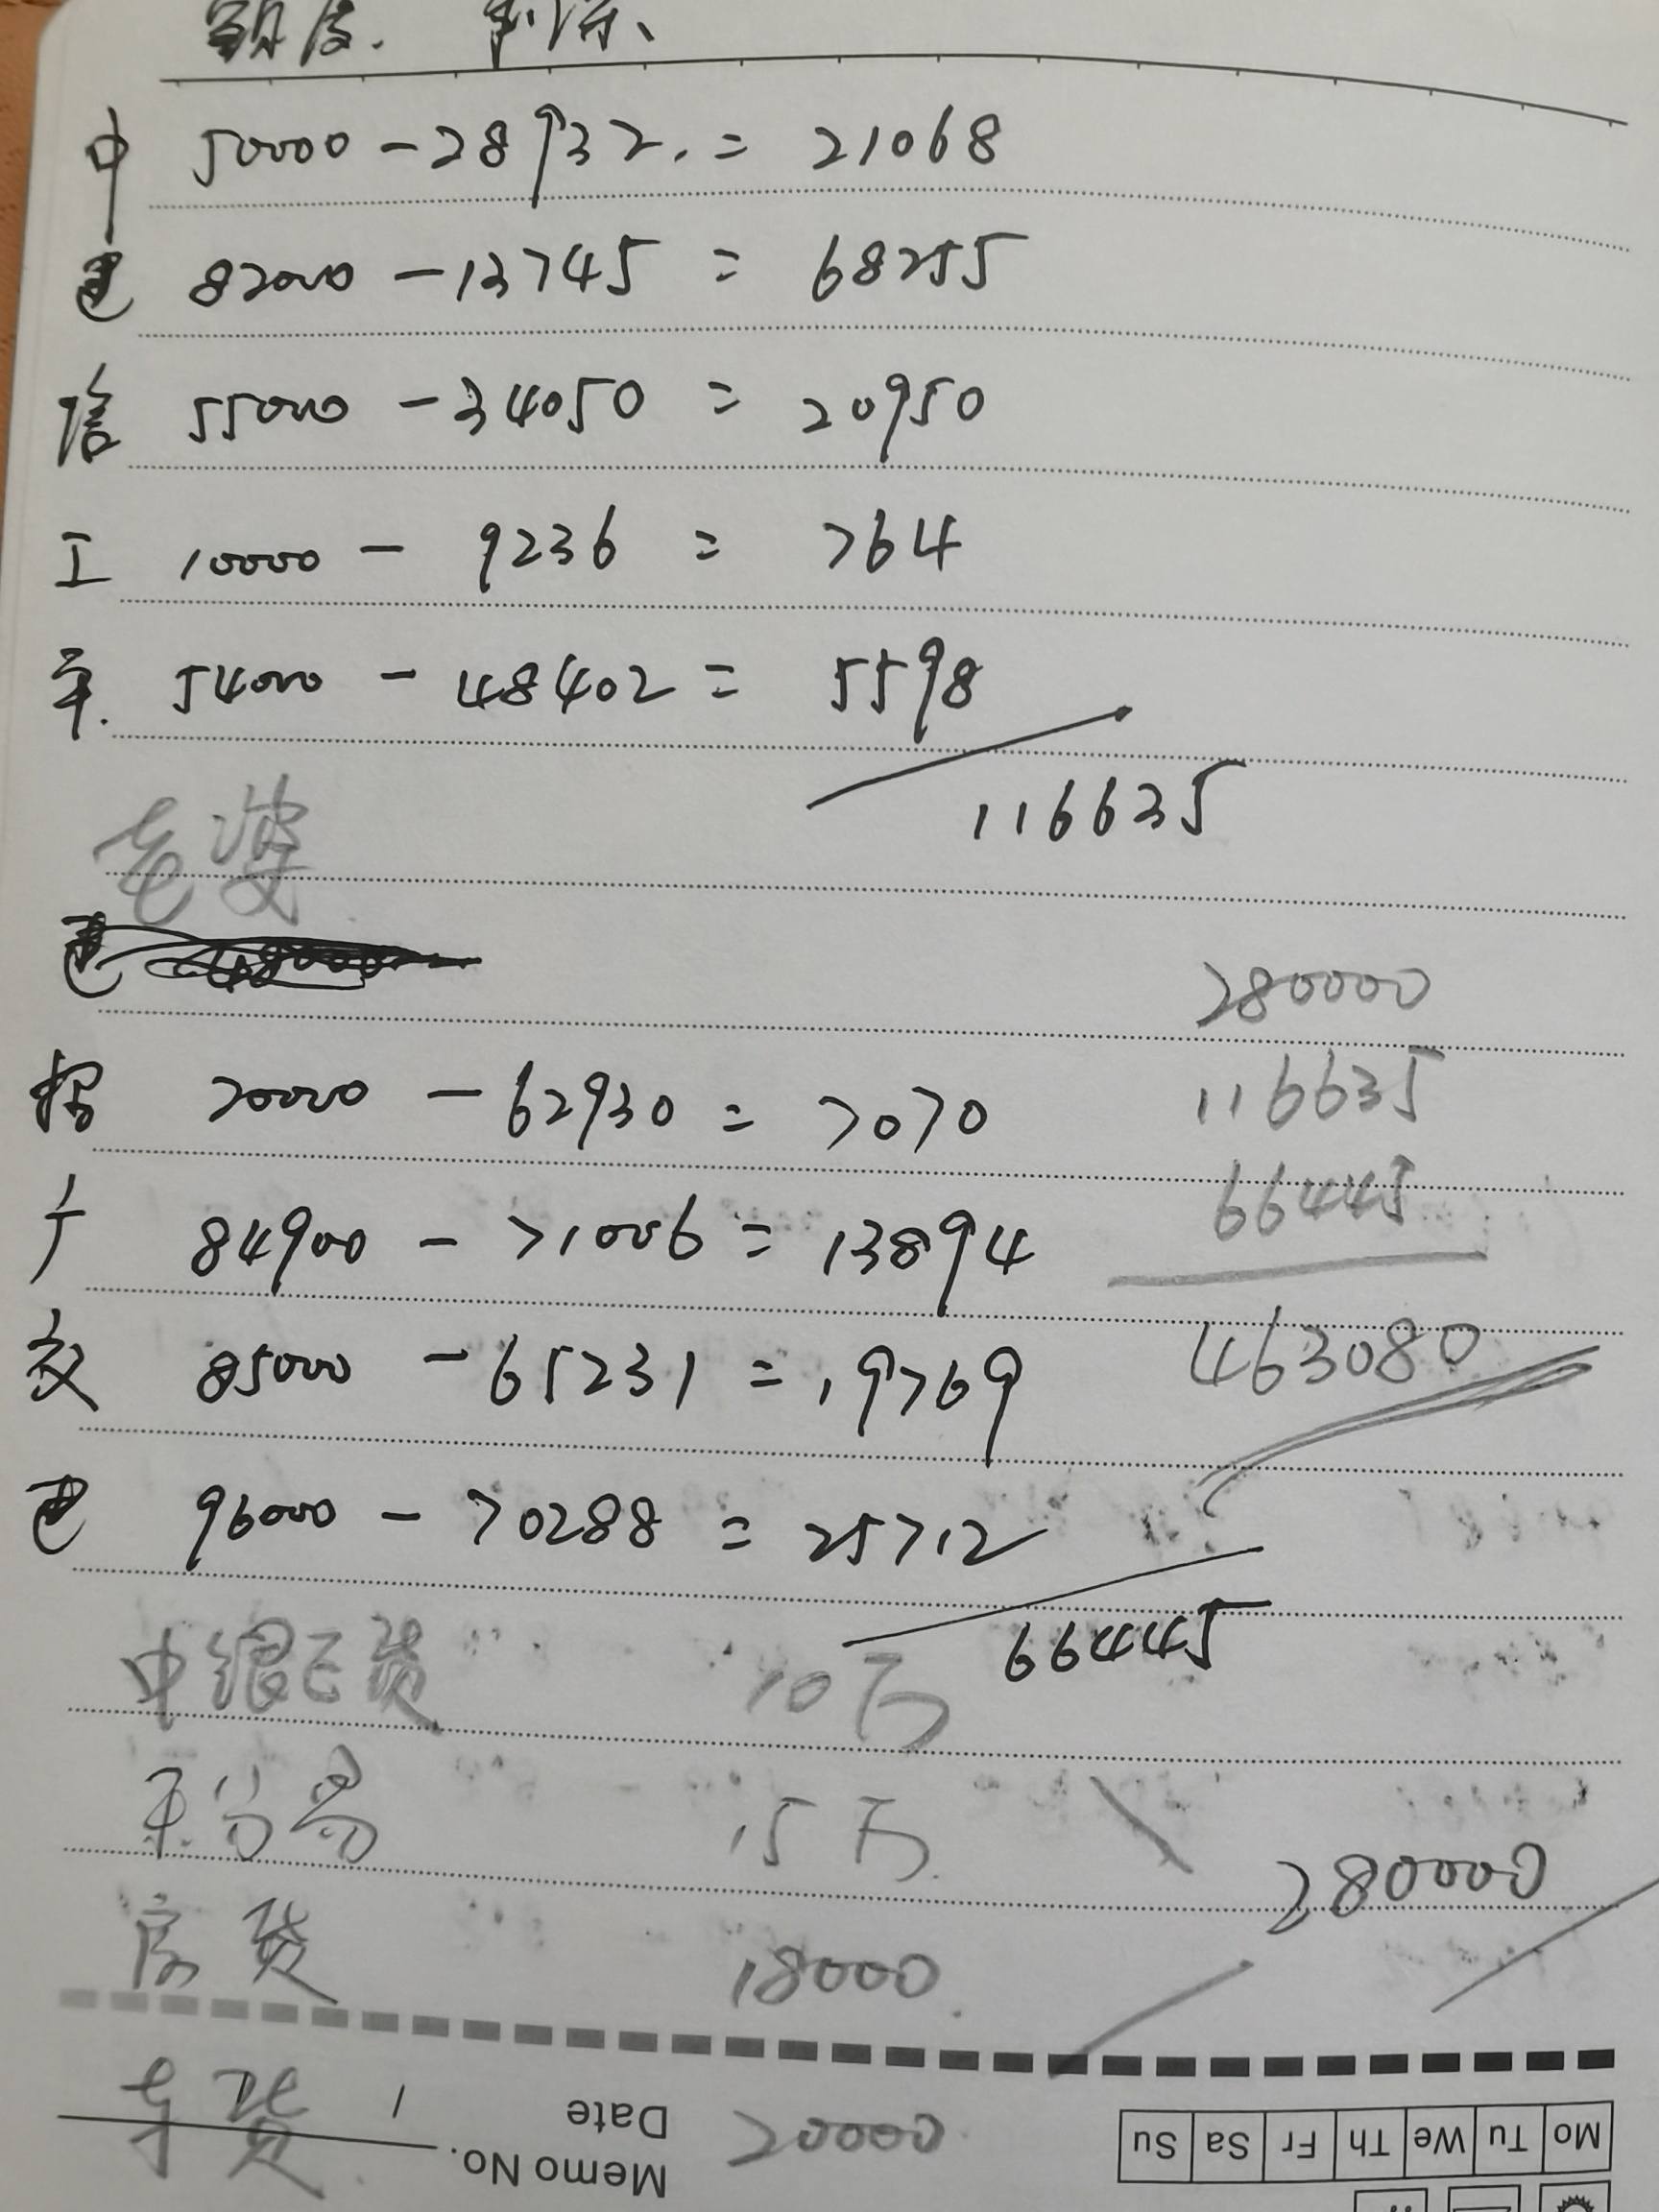 额度. 剩余、
中 50000 - 28932. = 21068
建 82000 - 13745 = 68255
信 55000 - 34050 = 20950
工 10000 - 9236 = 764
平. 54000 - 48402 = 5598
116635
老婆
建
280000
招 70000 - 62930 = 7070
116635
66445
广 84900 - 71006 = 13894
463080
交 85000 - 65231 = 19769
建 96000 - 70288 = 25712
66445
中银E贷 10万
15万
280000
房贷 18000.
车贷 20000
Memo No.
Date
Mo Tu We Th Fr Sa Su